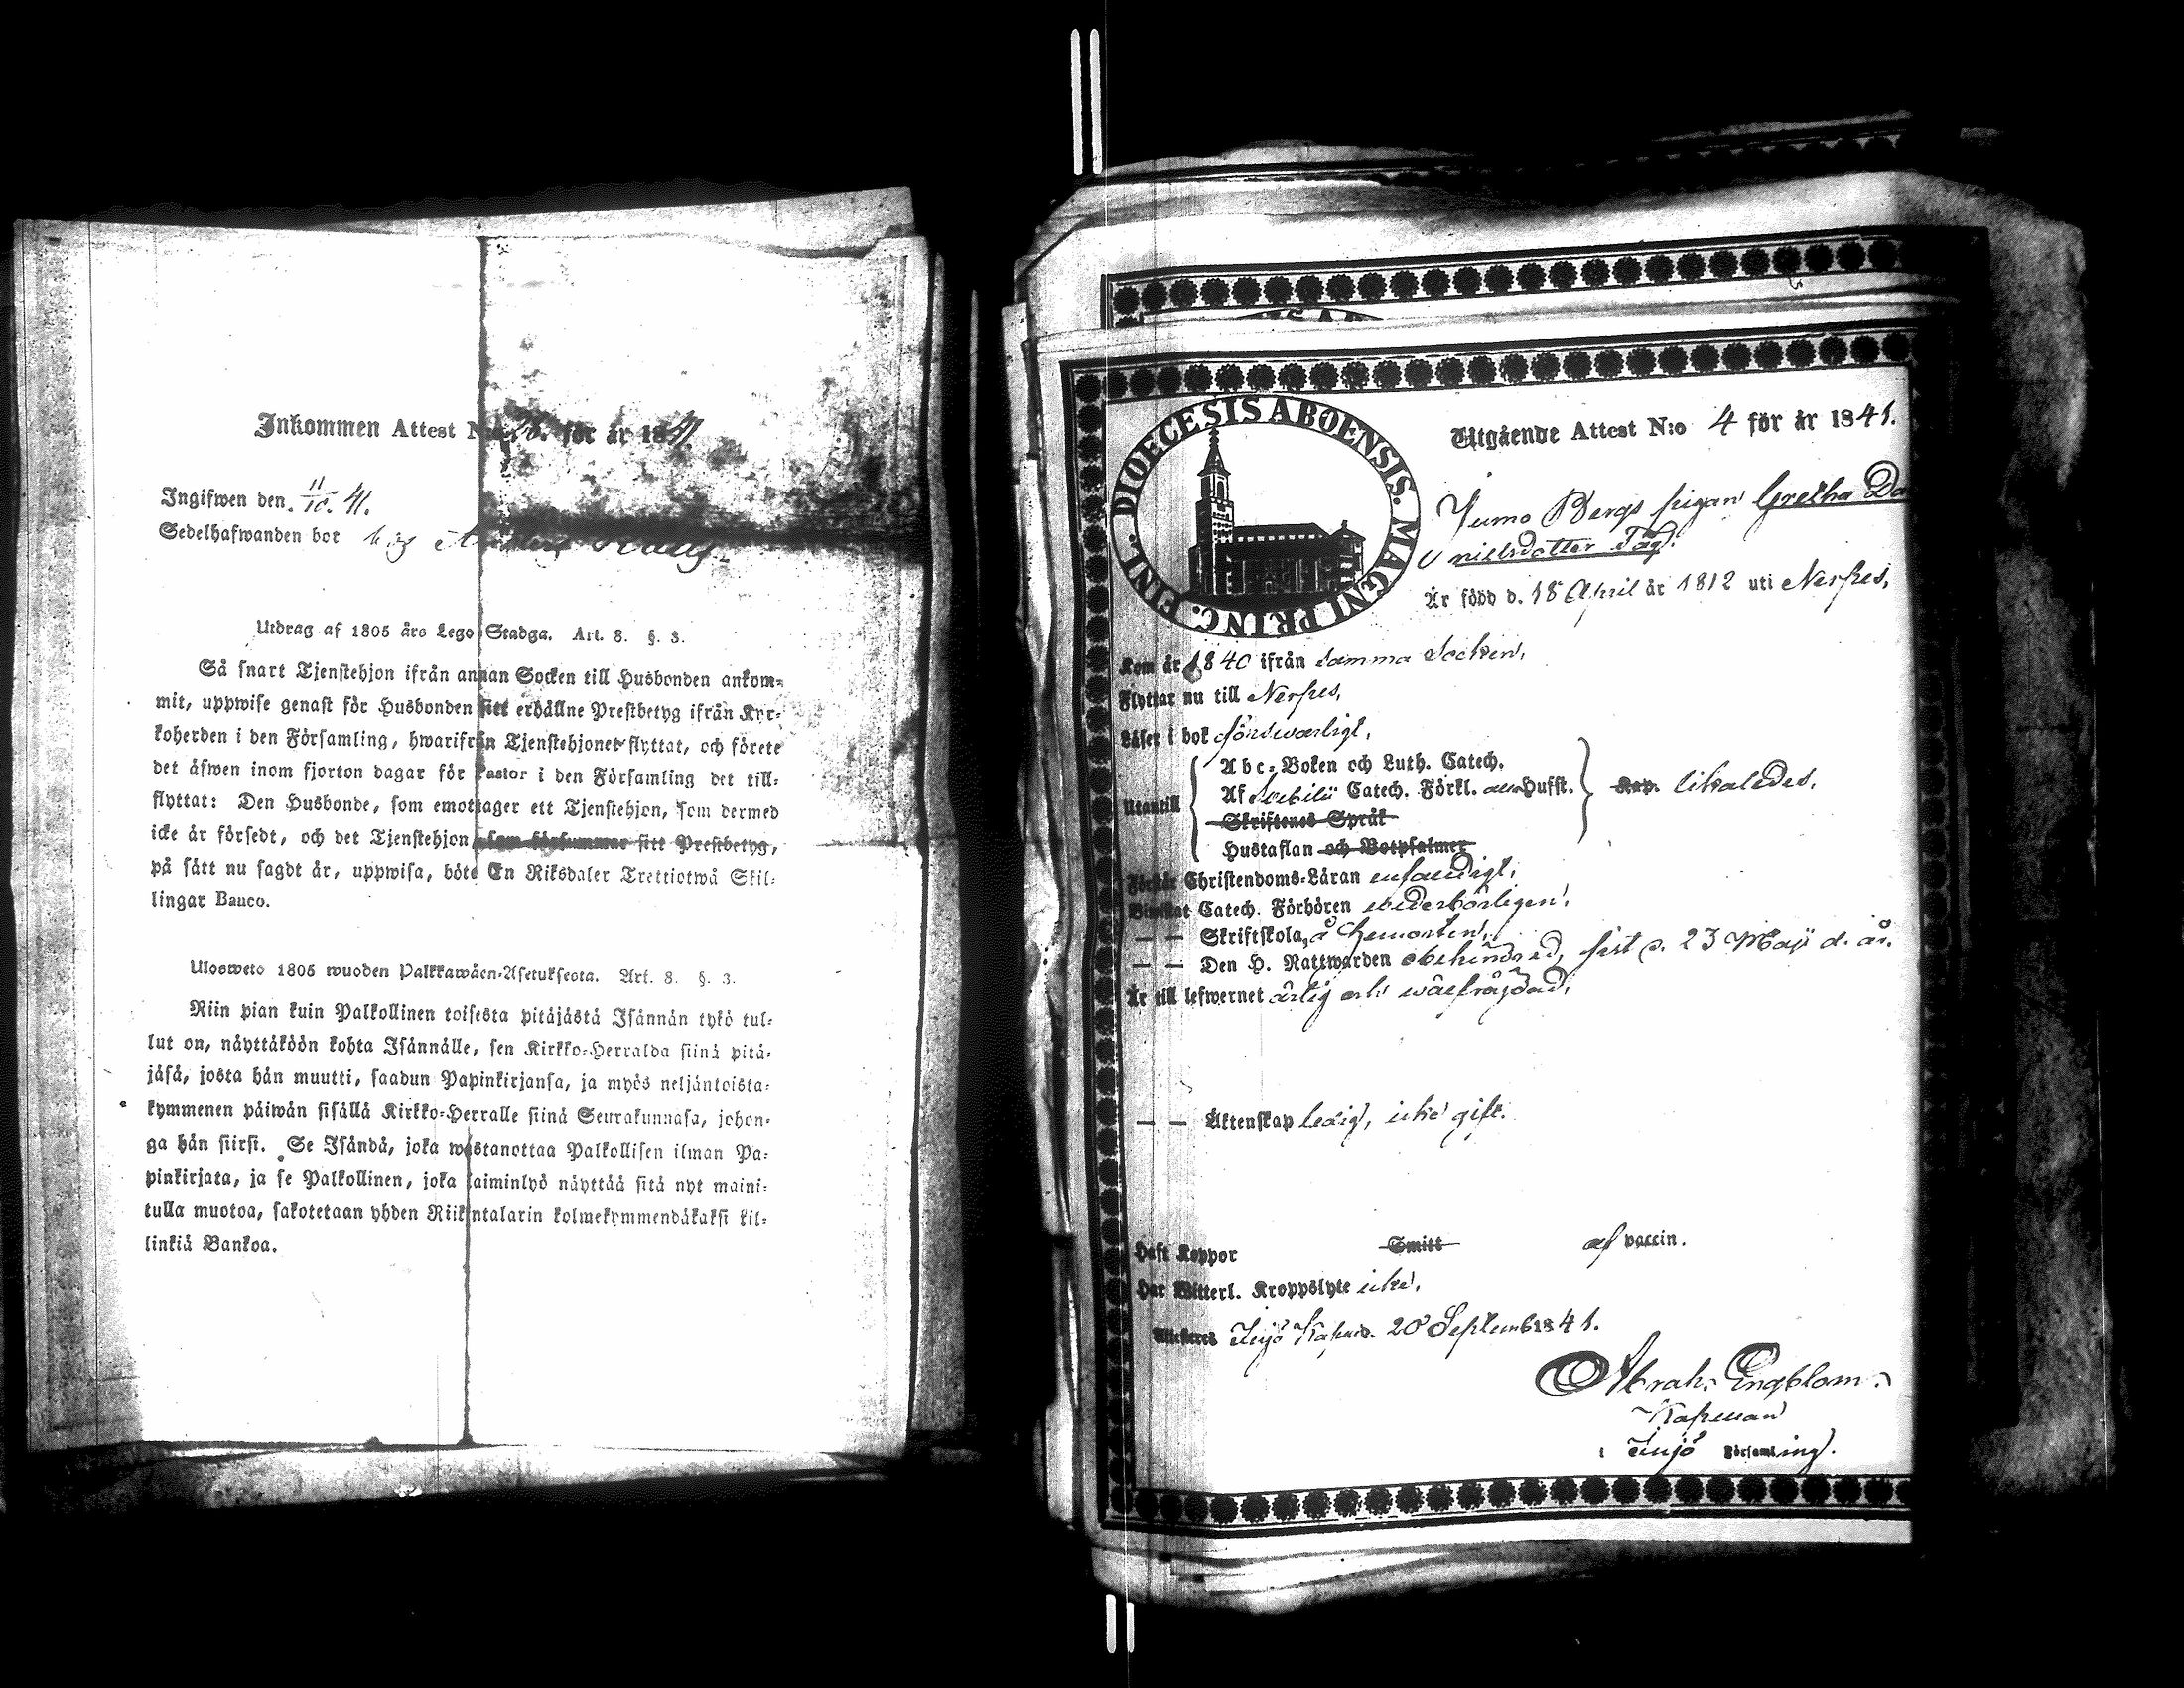 Inkommen Attest N:o för år 1841.
Ingifwen den 11/10. 41.
Sedelhafwanden bor hos
Utdrag af 1805 års Lego Stadga. Art. 8. §. 3.
Så snart Tjenstehjon ifrån annan Socken till Husbonden ankom-
mit, uppwise genast för Husbonden sitt erhållne Prestbetyg ifrån Kyr-
koherden i den Församling, hwarifrån Tjenstehjonet flyttat, och förete
det äfwen inom fjorton dagar för Pastor i den Församling det till-
flyttat: Den Husbonde, som emottager ett Tjenstehjon, som dermed
icke är försedt, och det Tjenstehjon, som försummar sitt Prestbetyg,
på sätt nu sagdt är, uppwisa, böte En Riksdaler Trettiotwå Skil-
lingar Banco.
Ulosweto 1805 wuoden Palkkawäen-Asetuksesta. Art. 8. §. 3.
Niin pian kuin Palkollinen toisesta pitäjästä Isännän tykö tul-
lut on, näyttäköön kohta Isännälle, sen Kirkko-Herralda siinä pitä-
jäsä, josta hän muutti, saadun Papinkirjansa, ja myös neljäntoista-
kymmenen päiwän sisällä Kirkko-Herralle siinä Seurakunnasa, johon-
ga hän siirsi. Se Isändä, joka wastanottaa Palkollisen ilman Pa-
pinkirjata, ja se Palkollinen, joka laiminlyö näyttää sitä nyt maini-
tulla muotoa, sakotetaan yhden Riikintalarin kolmekymmendäkaksi kil-
linkiä Bankoa.
DIOECESIS ABOENSIS. MAGNI PRINC. FINL.
Utgående Attest N:o 4 för år 1841.
Bergs pigan Gretha Da
nielsdotter Tåg.
Är född d. 18 April år 1812 uti Nerpes,
Kom år 1840 ifrån samma Socken,
Flyttar nu till Nerpes,
Läser i bok försvarligt,
Utantill
Abc-Boken och Luth. Catech.
Af Svebilii Catech. Förkl. Hufst.
Skriftenes Språk
Hustaflan och Botpsalmer
Kap. likaledes.
Förstår Christendoms-Läran enfaldigt,
Biwistat Catech. Förhören wederbörligen,
— — Skriftskola, å hemorten,
— — Den H. Nattwarden obehindrad, sist d. 23 Maji d. år.
Är till lefwernet ärlig och wälfrägdad,
— — Äktenskap ledig, icke gift.
Haft Koppor Smitt af vaccin.
Har Witterl. Kroppslyte icke,
Attesteres Sujö Kapund. 20 September 1841.
Abrah. Engblom.
Kapellan
i Sujö Församling.